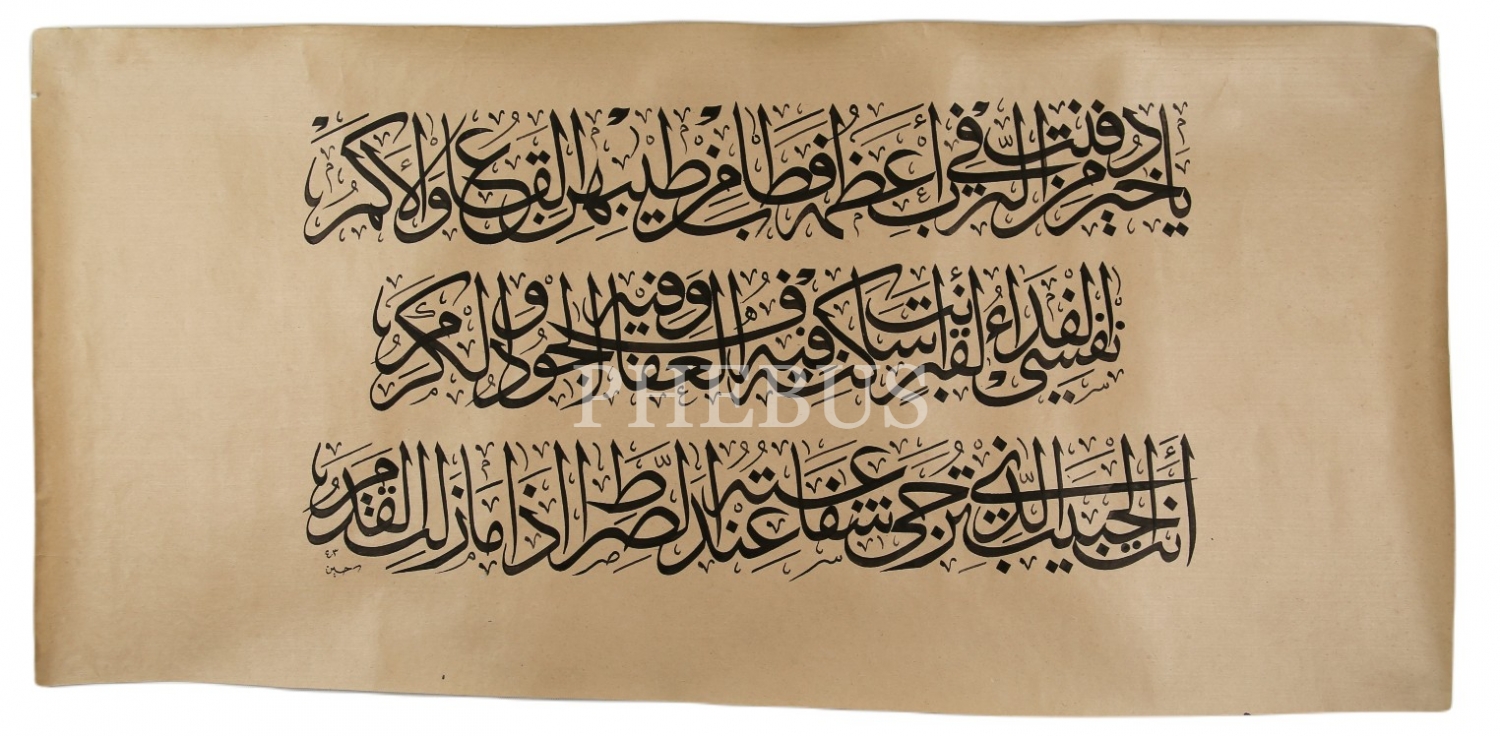 يا خير من دفنت في الترب أعظمه فطاب من طيبهن القاع والأكم
نفسي الفداء لقبر أنت ساكنه فيه العفاف وفيه الجود والكرم
أنت الحبيب الذي ترجى شفاعته عند الصراط إذا ما زلت القدم
حسين ٤٣
PHEBUS